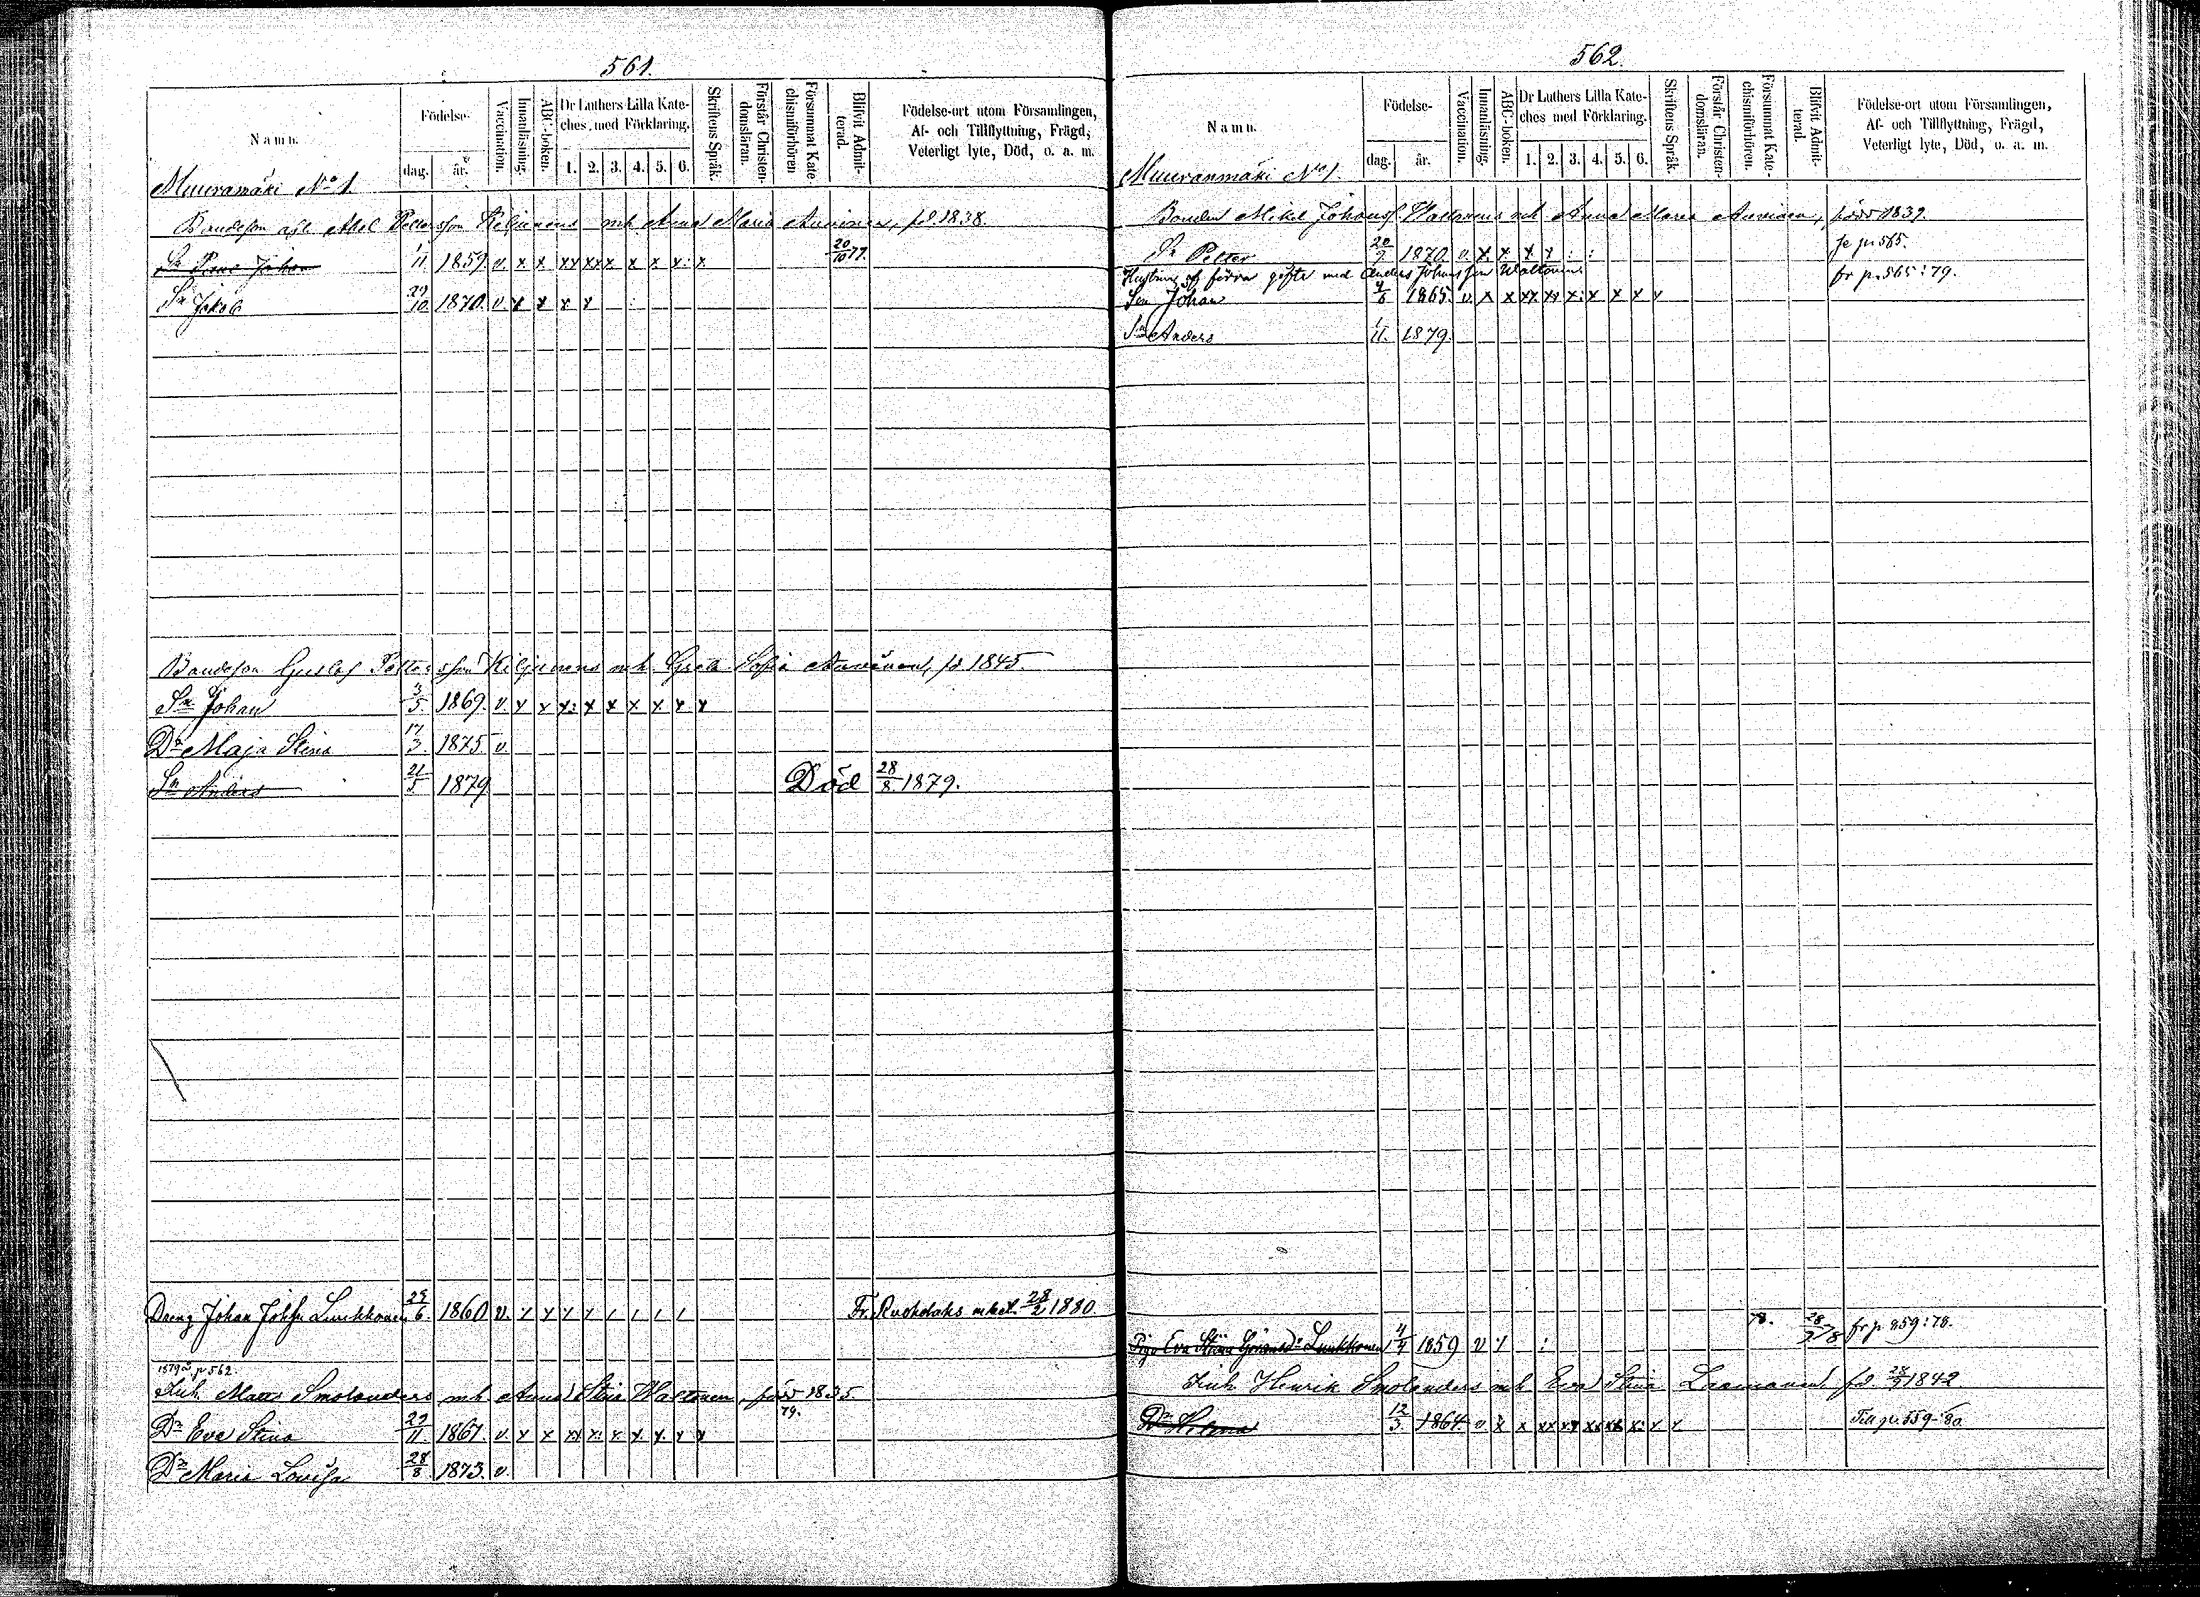 561.
Namn.
Födelse-
dag.
år.
Vaccination.
Innanläsning.
ABC-boken.
Dr Luthers Lilla Kate-
ches med Förklaring.
1. 2. 3. 4. 5. 6.
Skriftens Språk.
Förstår Christen-
domsläran.
Försummat Kate-
chismiförhören
Blifvit Admit-
terad.
Födelse-ort utom Församlingen,
Af- och Tillflyttning, Frägd,
Veterligt lyte, Död, o. a. m.
Muuramäki No 1.
Bondeson Abel Pettersson Kiljunens mh Anna Maria Auvinen, fd 1838.
Sn Johan 1/11 1859. v. x x xx xx x. x x x: x 20/10 77.
Sn Jakob 29/10 1870. v. x x x x
Bondeson Gustaf Pettersson Kiljunens mh. Greta Sofia Auvinen, fd 1845.
Sn Johan 3/5 1869. v. x x x: x x x x x x
Dr Maja Stina 17/3 1875 v.
Sn Anders 21/5 1879 Död 28/8 1879.
Dreng Johan Johsn Lunkkonen 29/6. 1860 v. Fr. Ruokolaks 28/2 1880.
p 562.
Inh. Matts Smolanders mh Anna Stina Waltonen, född 1835
79.
Dr Eva Stina 29/11. 1867. v. x x xx x: x. x x. x x
Dr Maria Lovisa 28/8 1873. v.
562.
Namn.
Födelse-
dag.
år.
Vaccination.
Innanläsning.
ABC-boken.
Dr Luthers Lilla Kate-
ches med Förklaring.
1. 2. 3. 4. 5. 6.
Skriftens Språk.
Förstår Christen-
domsläran.
Försummat Kate-
chismiförhören.
Blifvit Admit-
terad.
Födelse-ort utom Församlingen,
Af- och Tillflyttning, Frägd,
Veterligt lyte, Död, o. a. m.
Muuranmäki No 1.
Bonden Mikel Johanss. Waltonens mh Anna Maria Auvinen, född 1839.
Sn Petter 20/9 1870. v. x x x x : : se p. 565.
Hustruns af förra gifte med Anders Johansson Waltonen fr p. 565:79.
Son Johan 4/6 1865. v. x x xx xx x: x x x x
Sn Anders 1/11. 1879.
Piga Eva Stina Lunkkonen 4/4 1859 v : 78. 28/2 78 fr p 859:78.
Inh Henrik Smolanders mh Eva Stina Laamanen, fd. 1842
Dr Helena 12/3. 1864. v. x x xx xx xx xx x: x x Till p. 559-80